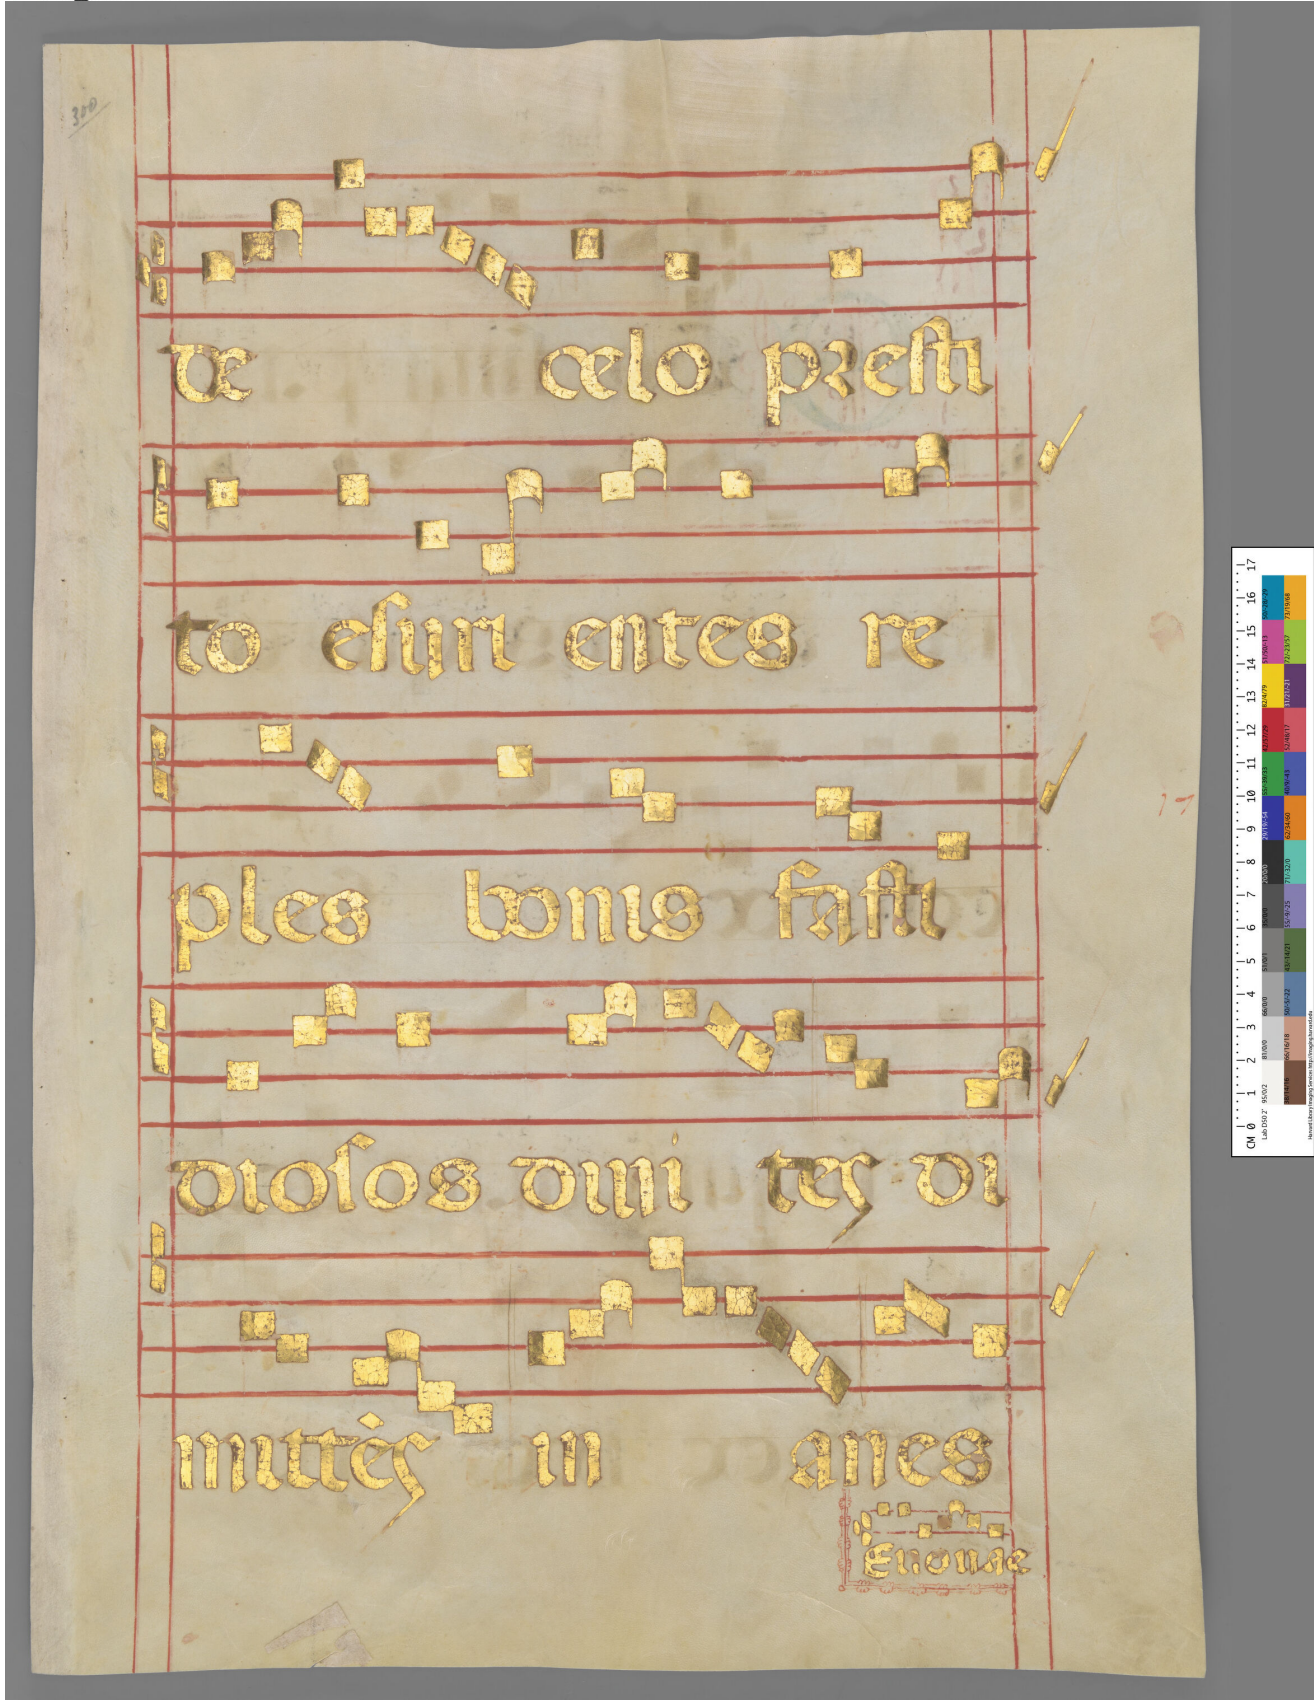 300
de celo presti
to esuri entes re
ples bonis fasti
diosos divi tes di
mittes in anes
Euouae
CM 0 1 2 3 4 5 6 7 8 9 10 11 12 13 14 15 16 17